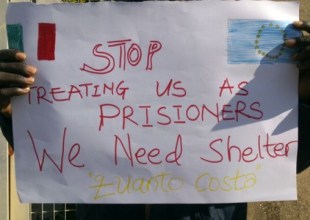 STOP
TREATING US AS
PRISIONERS
We Need Shelter
"Zuanto Costa"